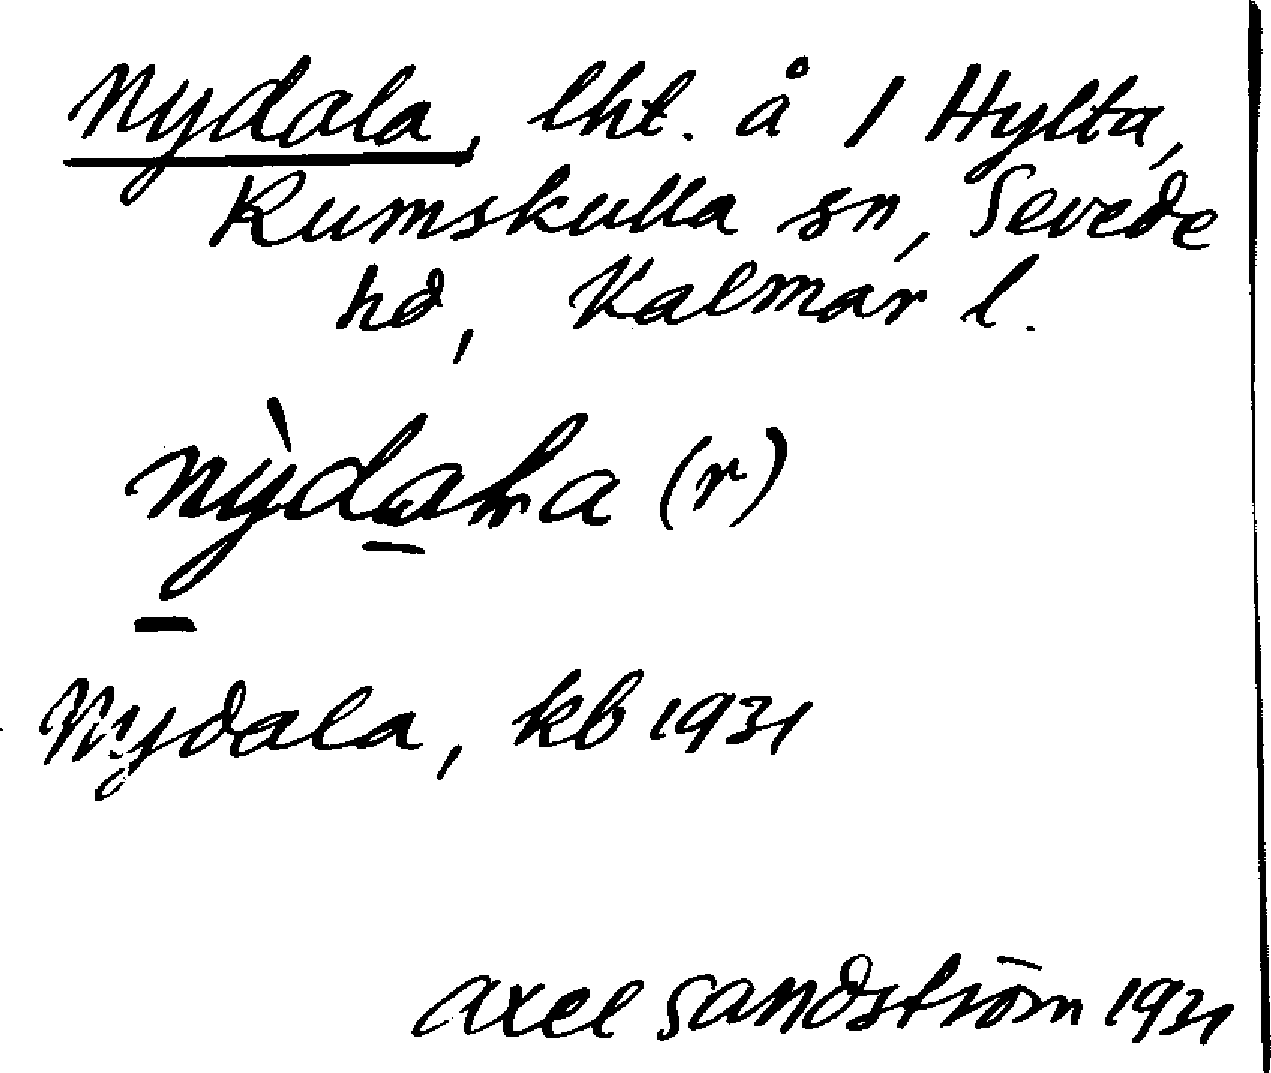 Nydala, lht. å 1 Hylta,
Rumskulla sn, Sevede
hd, Kalmar l.
nỳdaɫa (r)
Nydala, kb 1931
Axel Sandström 1931